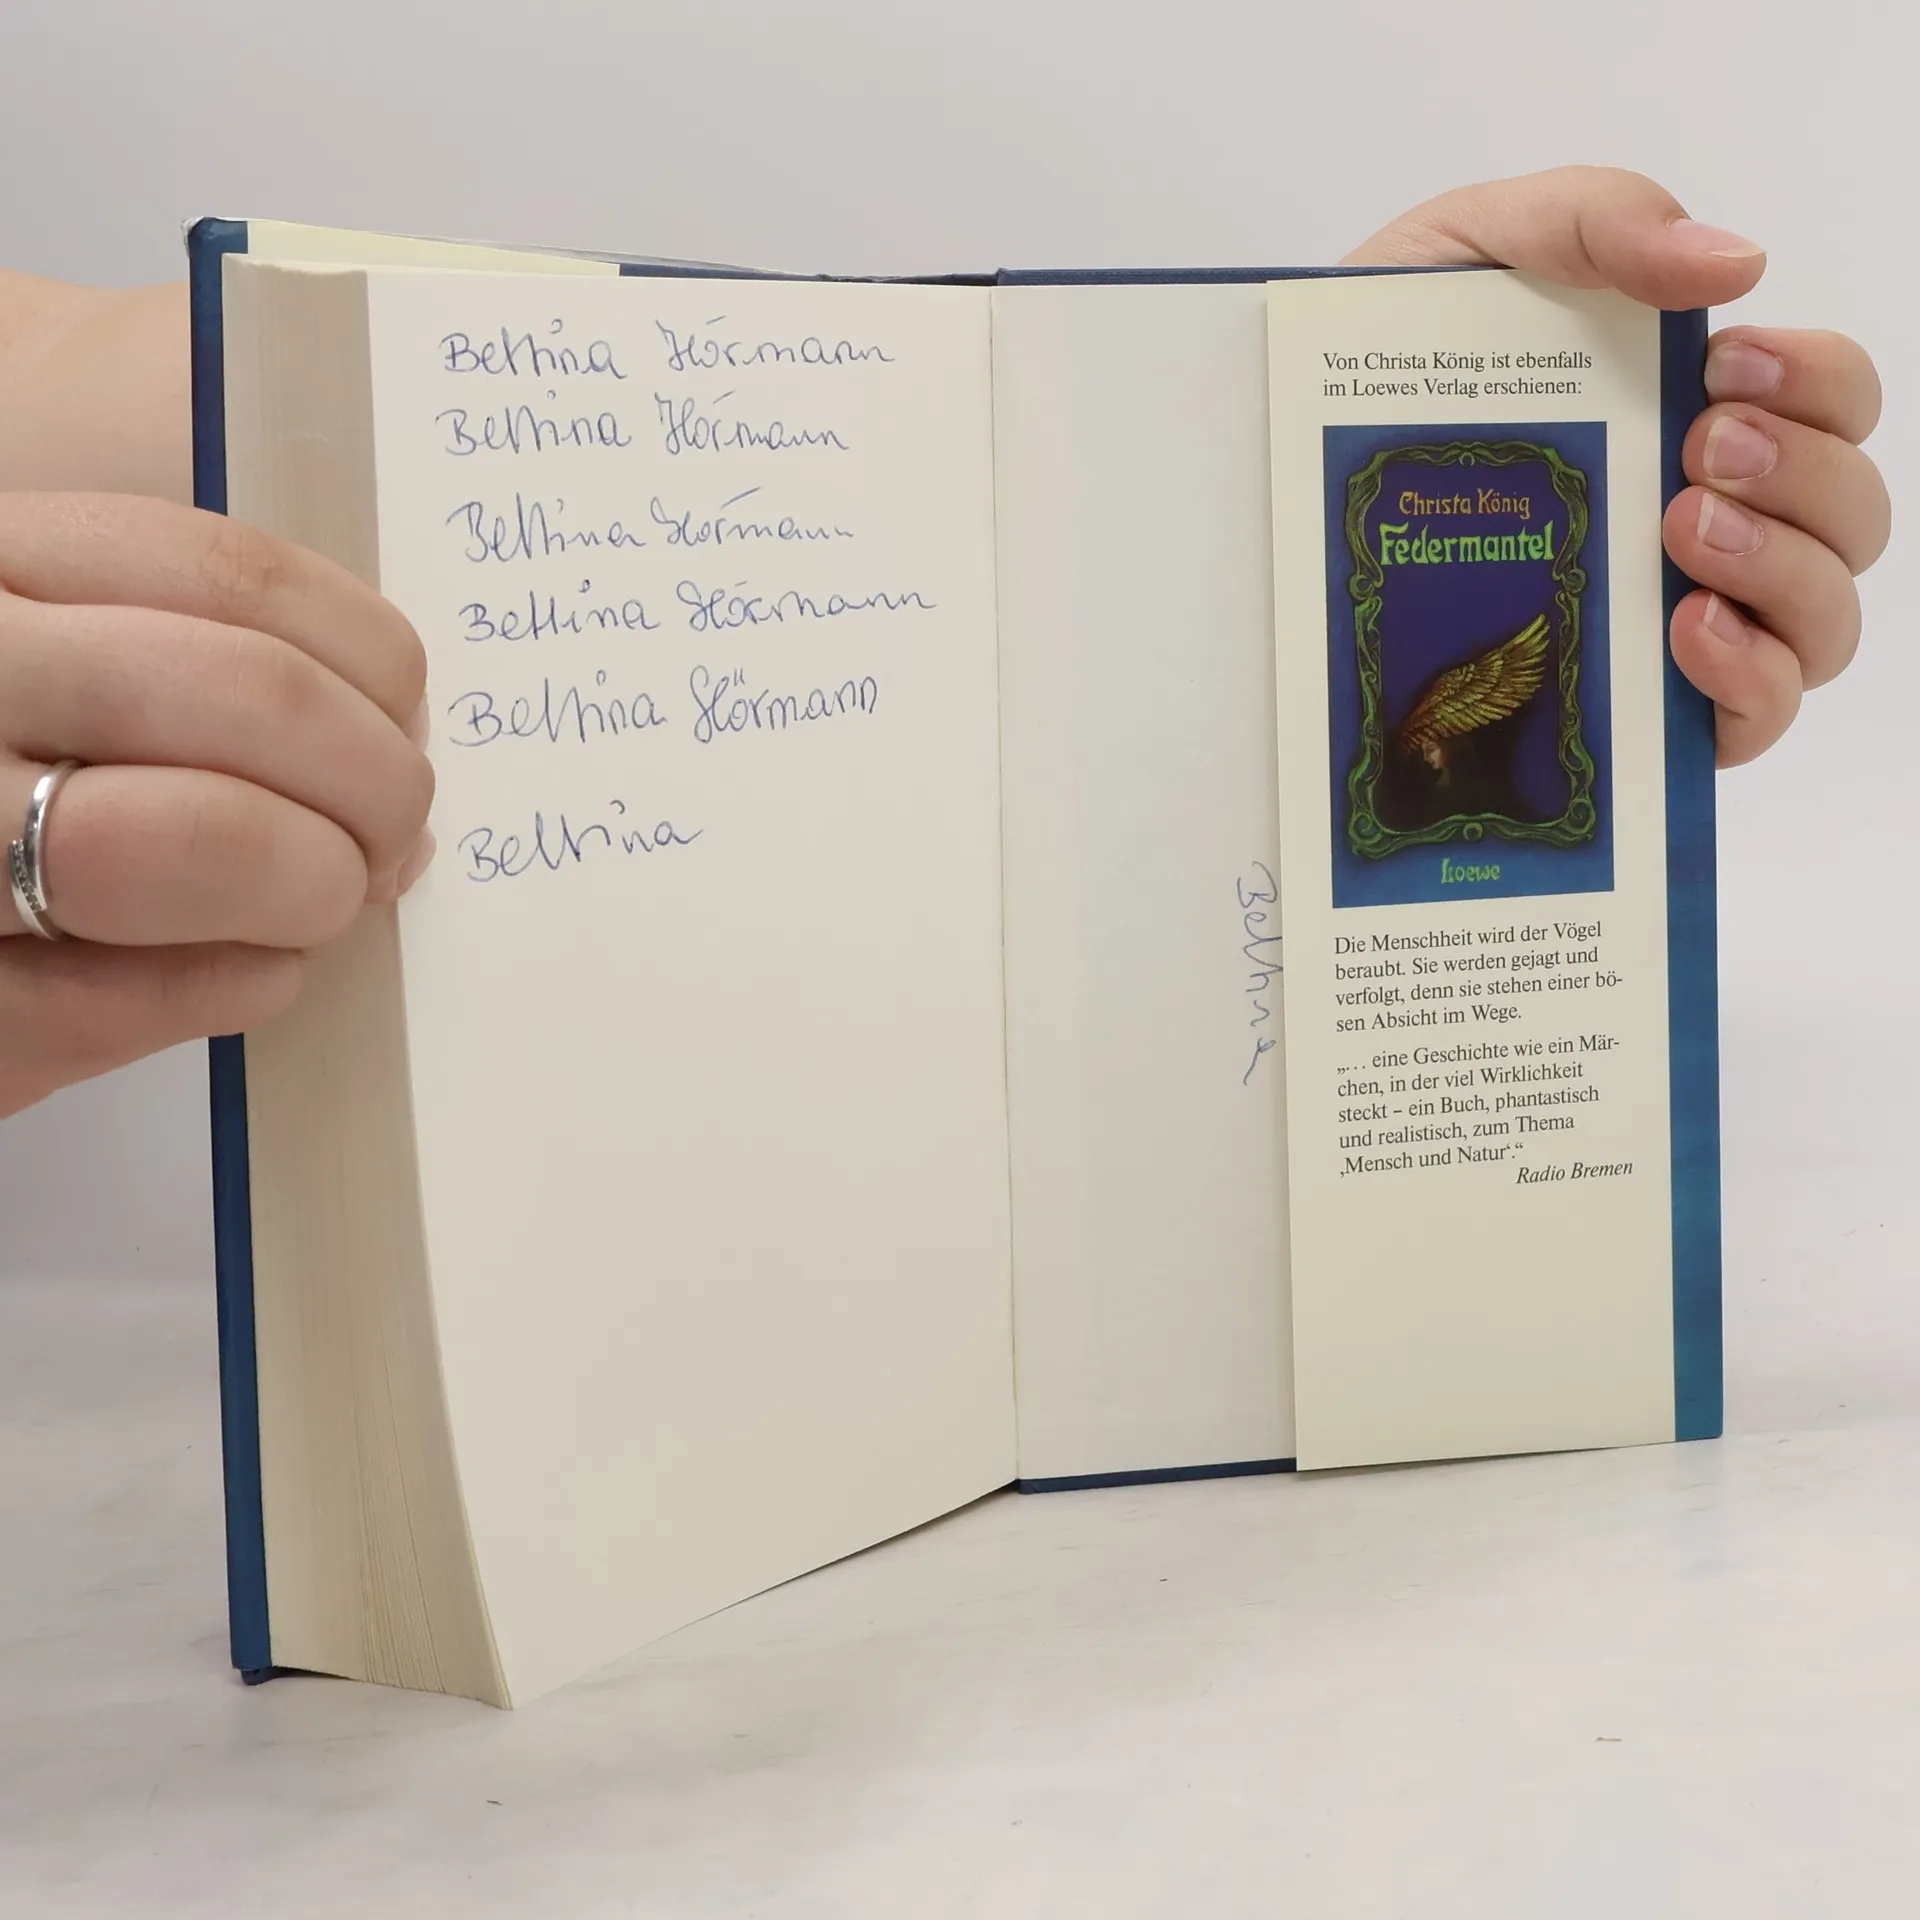 Bettina Hörmann
Bettina Hörmann
Bettina Hörmann
Bettina Hörmann
Bettina Hörmann
Bettina
Bettina
Von Christa König ist ebenfalls
im Loewes Verlag erschienen:
Christa König
Federmantel
Loewe
Die Menschheit wird der Vögel
beraubt. Sie werden gejagt und
verfolgt, denn sie stehen einer bö-
sen Absicht im Wege.
„... eine Geschichte wie ein Mär-
chen, in der viel Wirklichkeit
steckt – ein Buch, phantastisch
und realistisch, zum Thema
‚Mensch und Natur‘.“
Radio Bremen